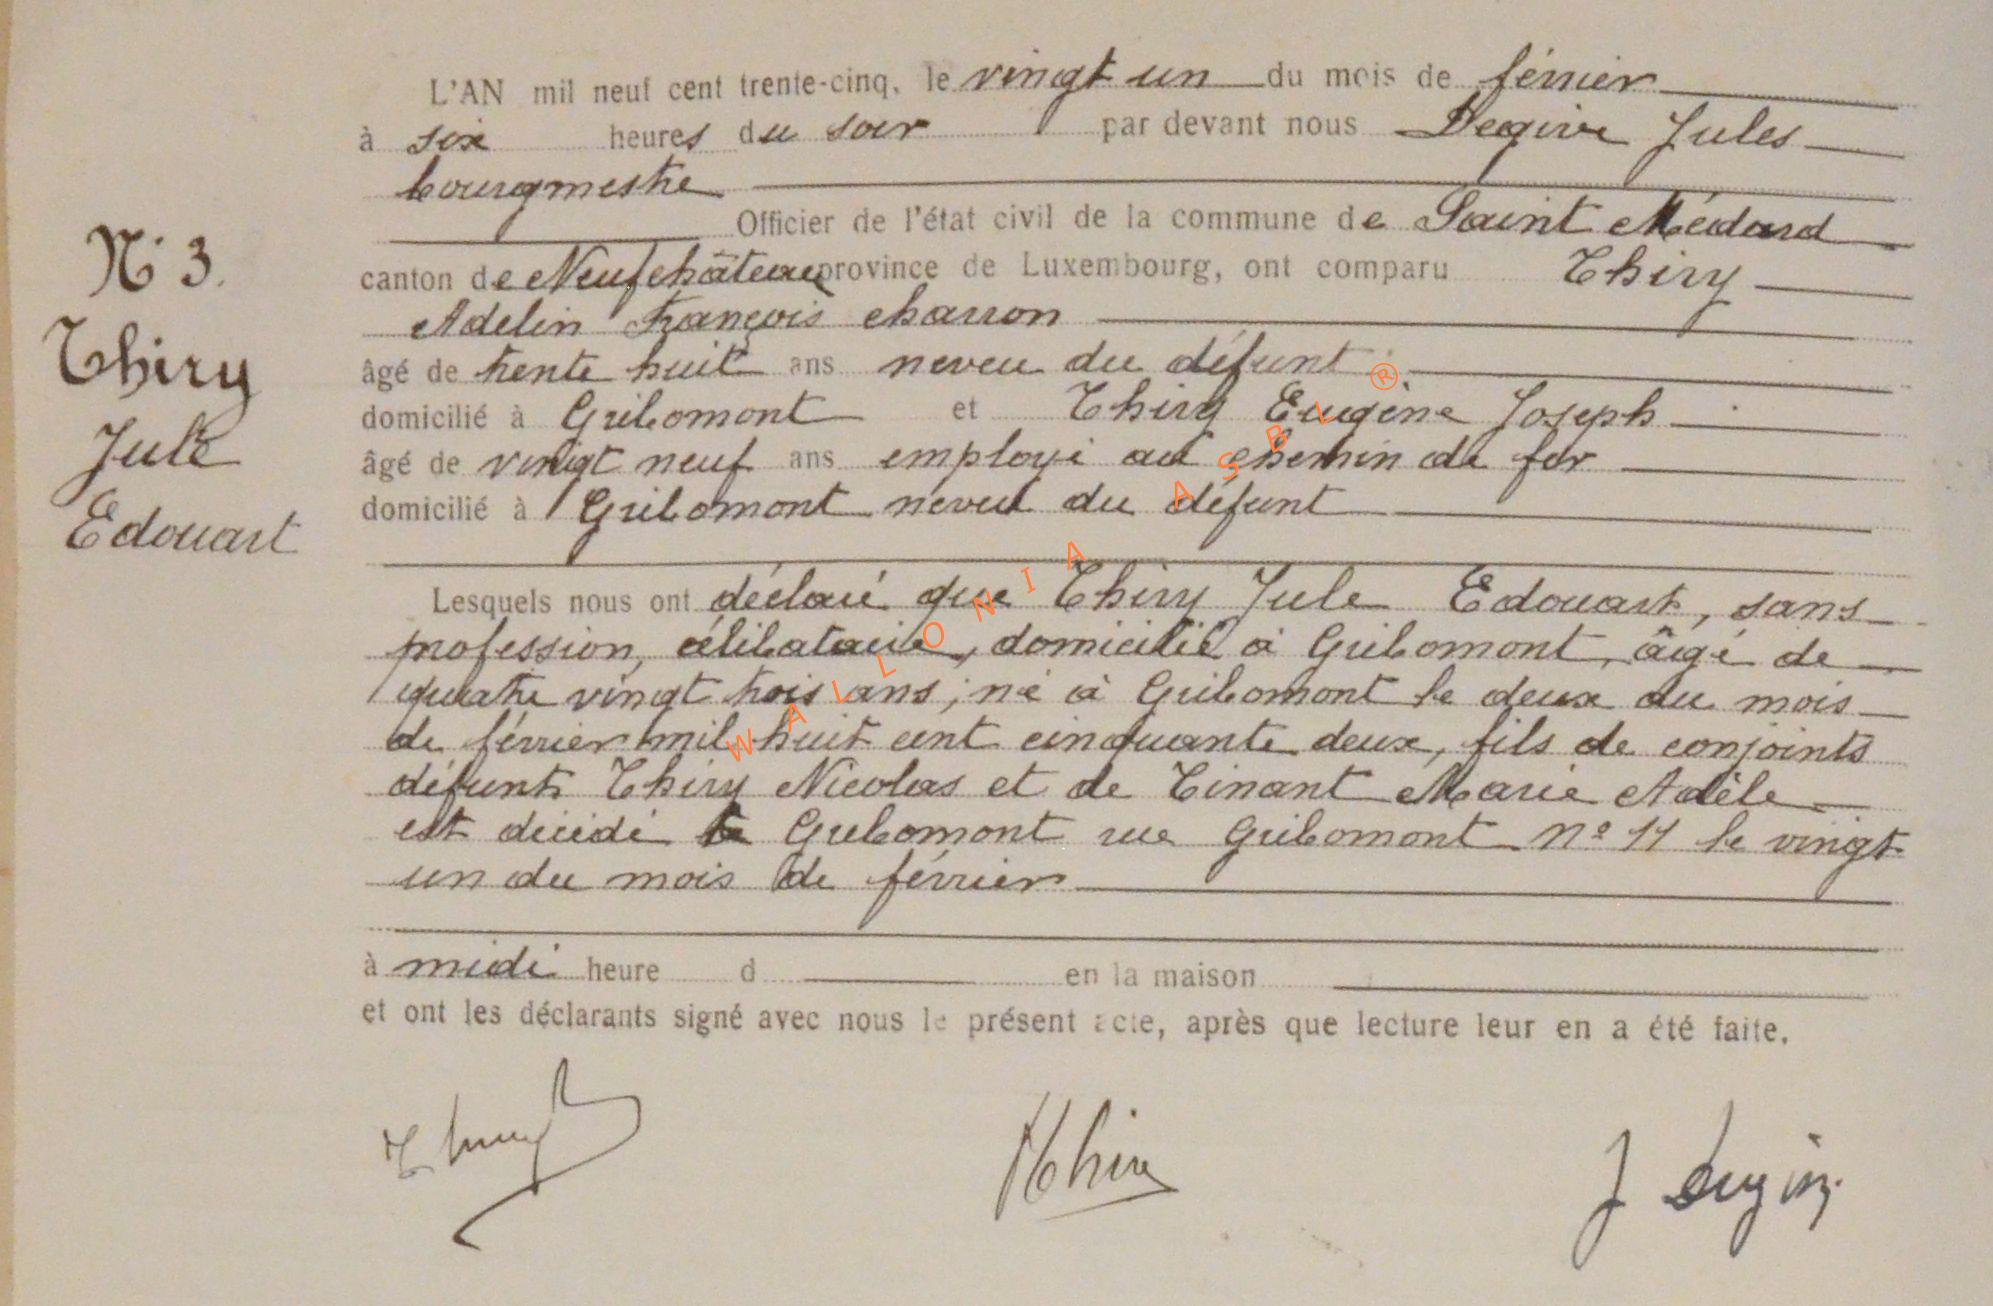 L'AN mil neuf cent trente-cinq, le vingt un du mois de février
à six heures du soir par devant nous Degive Jules
bourgmestre
Officier de l'état civil de la commune de Saint Médard
canton de Neufchâteau province de Luxembourg, ont comparu Thiry
Adelin François charron
âgé de trente huit ans neveu du défunt
domicilié à Gribomont et Thiry Eugène Joseph
âgé de vingt neuf ans employé au chemin de fer
domicilié à Gribomont neveu du défunt
N° 3.
Thiry
Jule
Edouart
Lesquels nous ont déclaré que Thiry Jule Edouart, sans
profession, célibataire, domicilié à Gribomont, âgé de
quatre vingt trois ans, né à Gribomont le deux du mois
de février mil huit cent cinquante deux, fils de conjoints
défunts Thiry Nicolas et de Tinant Marie Adèle
est décédé à Gribomont rue Gribomont N° 11 le vingt
un du mois de février
à midi heure d en la maison
et ont les déclarants signé avec nous le présent acte, après que lecture leur en a été faite.
WALLONIA ASBL ®